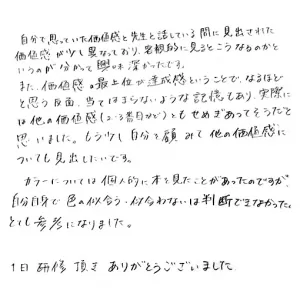 自分で思っていた価値感と先生と話している間に見出された
価値感が少し異なっており、客観的に見るとこうなるのかと
いうのが分かって興味深かったです。
また、価値感の最上位が達成感ということで、なるほど
と思う反面、当てはまらないような記憶もあり、実際に
は他の価値感(2~3番目など)ともせめぎあってそうだと
思いました。もう少し自分を顧みて他の価値感に
ついても見出したいです。
カラーについては個人的に本を見たことがあったのですが、
自分自身で色の似合う・似合わないは判断できなかった
とても参考になりました。
1日研修頂きありがとうございました